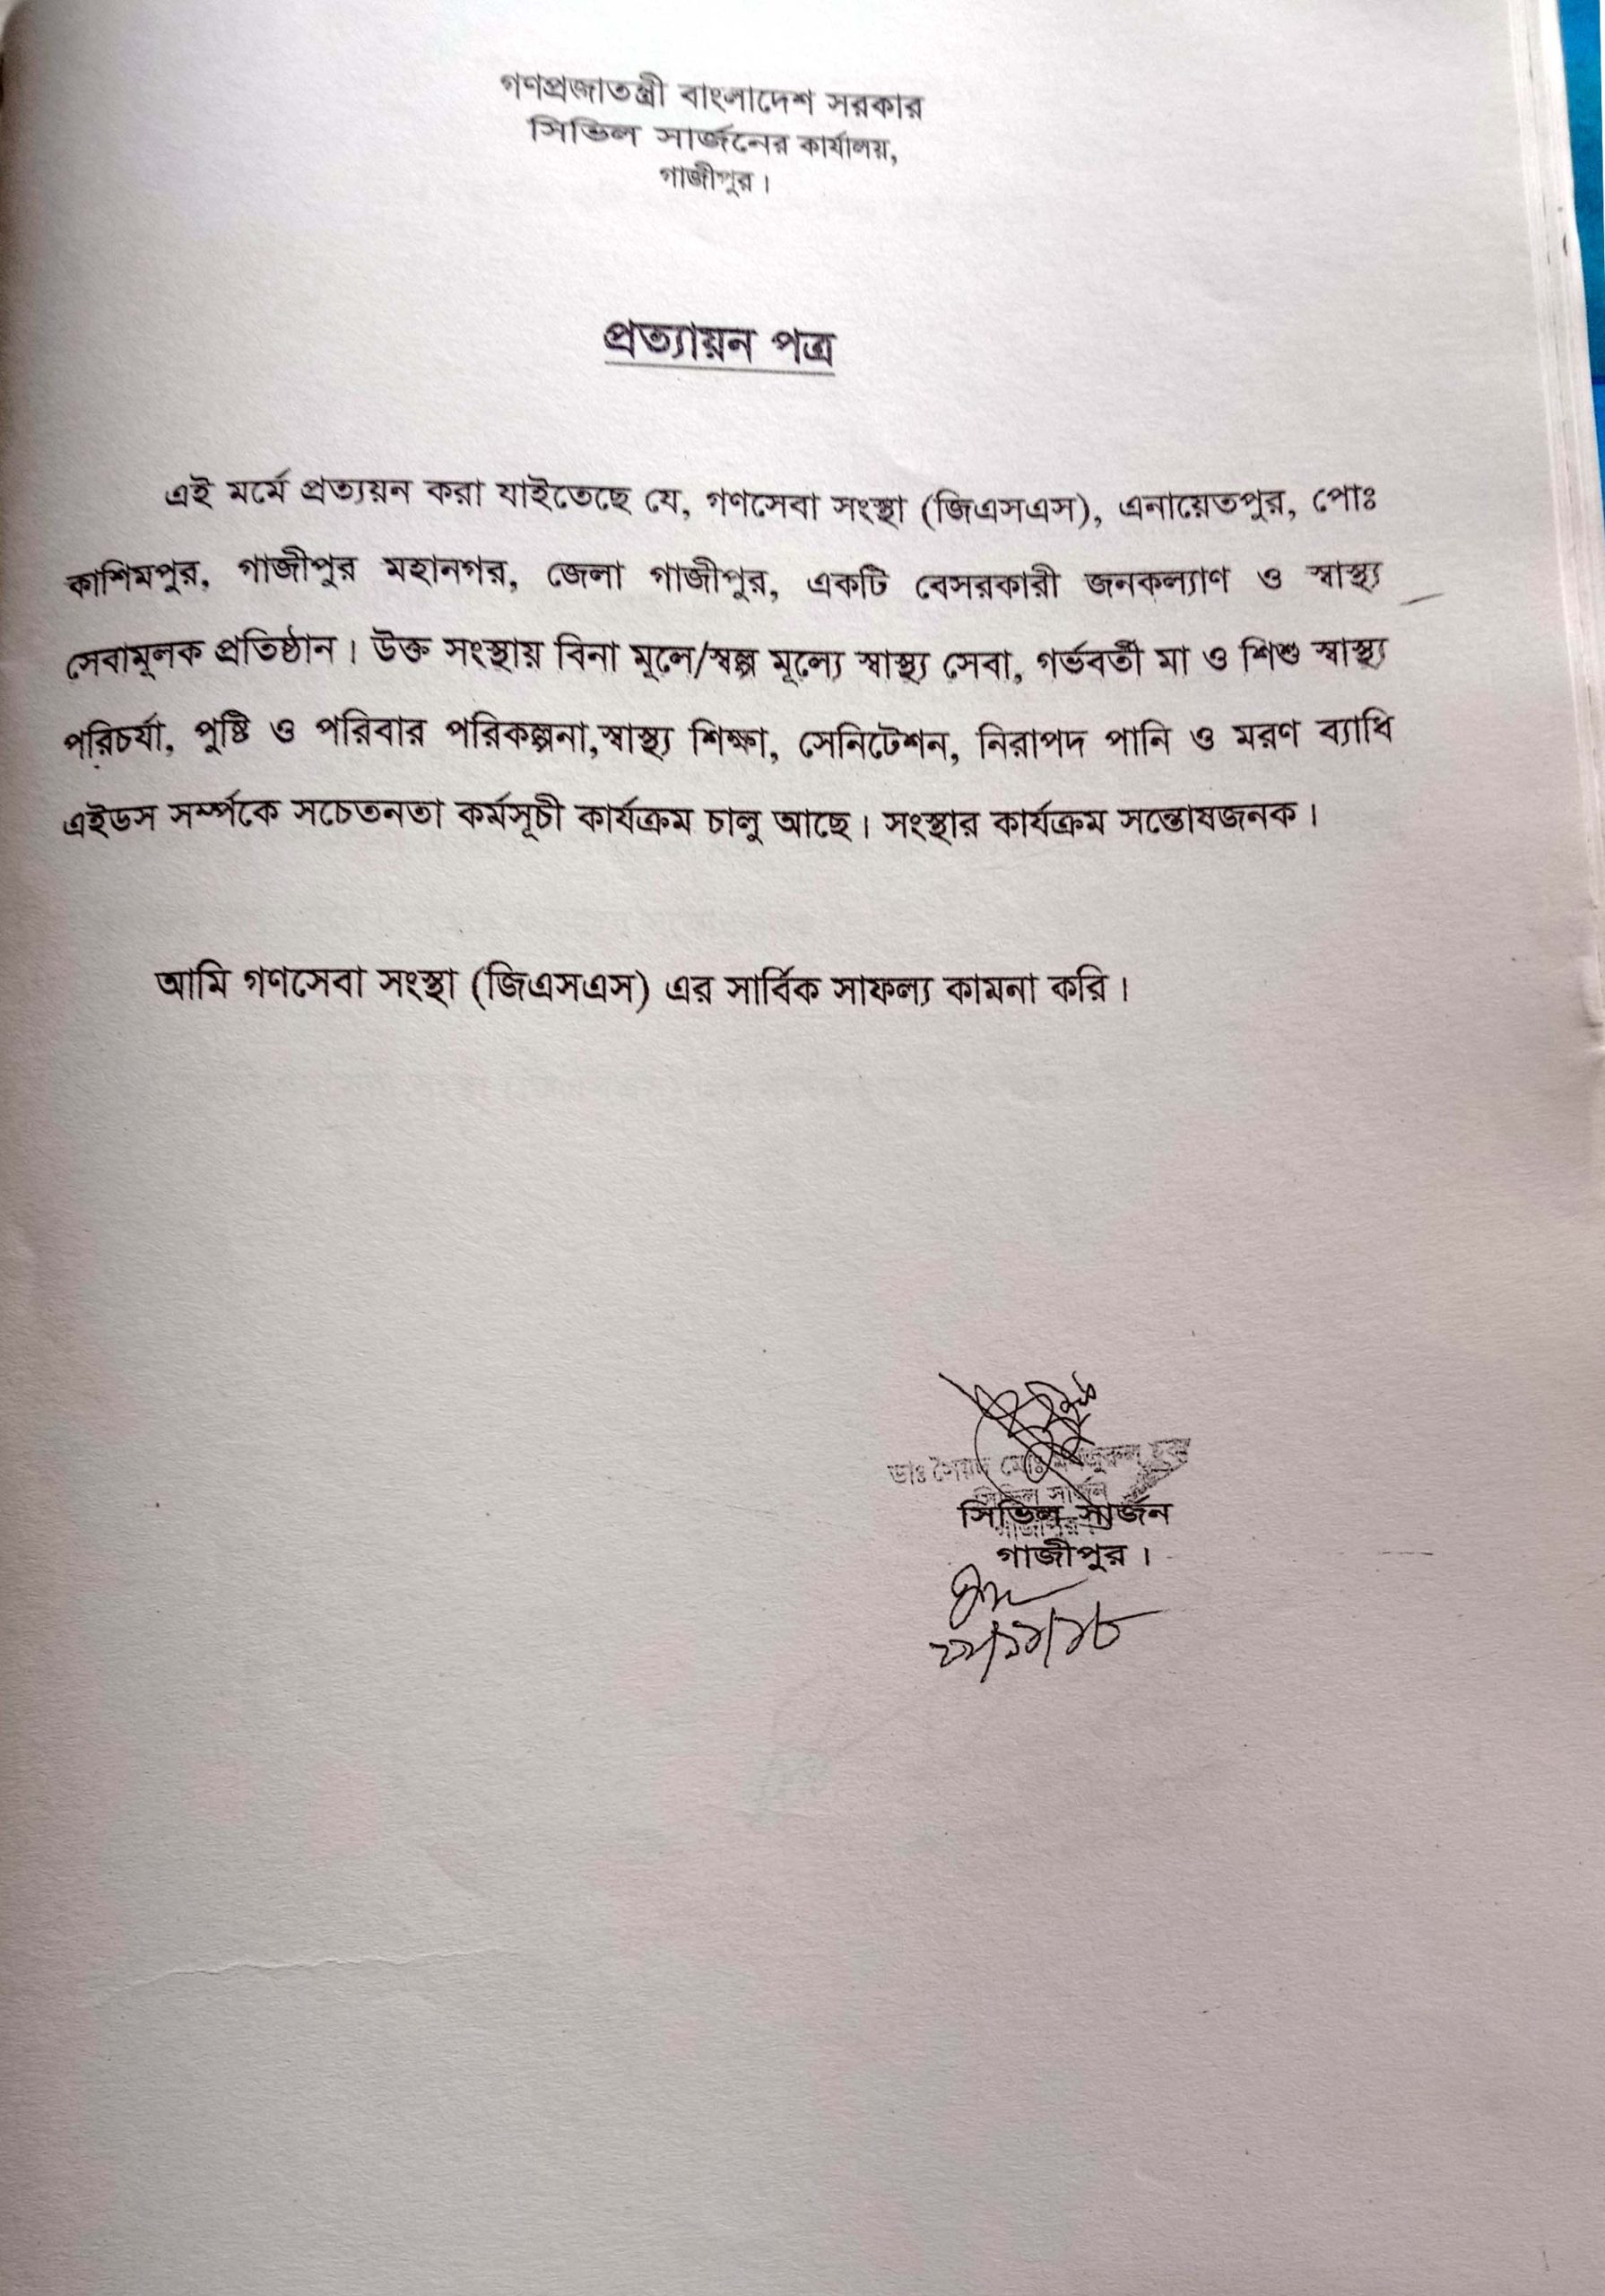 গণপ্রজাতন্ত্রী বাংলাদেশ সরকার
সিভিল সার্জনের কার্যালয়,
গাজীপুর।
প্রত্যায়ন পত্র
এই মর্মে প্রত্যয়ন করা যাইতেছে যে, গণসেবা সংস্থা (জিএসএস), এনায়েতপুর, পোঃ
কাশিমপুর, গাজীপুর মহানগর, জেলা গাজীপুর, একটি বেসরকারী জনকল্যাণ ও স্বাস্থ্য
সেবামূলক প্রতিষ্ঠান। উক্ত সংস্থায় বিনা মূলে/স্বল্প মূল্যে স্বাস্থ্য সেবা, গর্ভবতী মা ও শিশু স্বাস্থ্য
পরিচর্যা, পুষ্টি ও পরিবার পরিকল্পনা,স্বাস্থ্য শিক্ষা, সেনিটেশন, নিরাপদ পানি ও মরণ ব্যাধি
এইডস সর্ম্পকে সচেতনতা কর্মসূচী কার্যক্রম চালু আছে। সংস্থার কার্যক্রম সন্তোষজনক।
আমি গণসেবা সংস্থা (জিএসএস) এর সার্বিক সাফল্য কামনা করি।
ডাঃ সৈয়দ মোঃ হক
সিভিল সার্জন
গাজীপুর
সিভিল সার্জন
গাজীপুর।